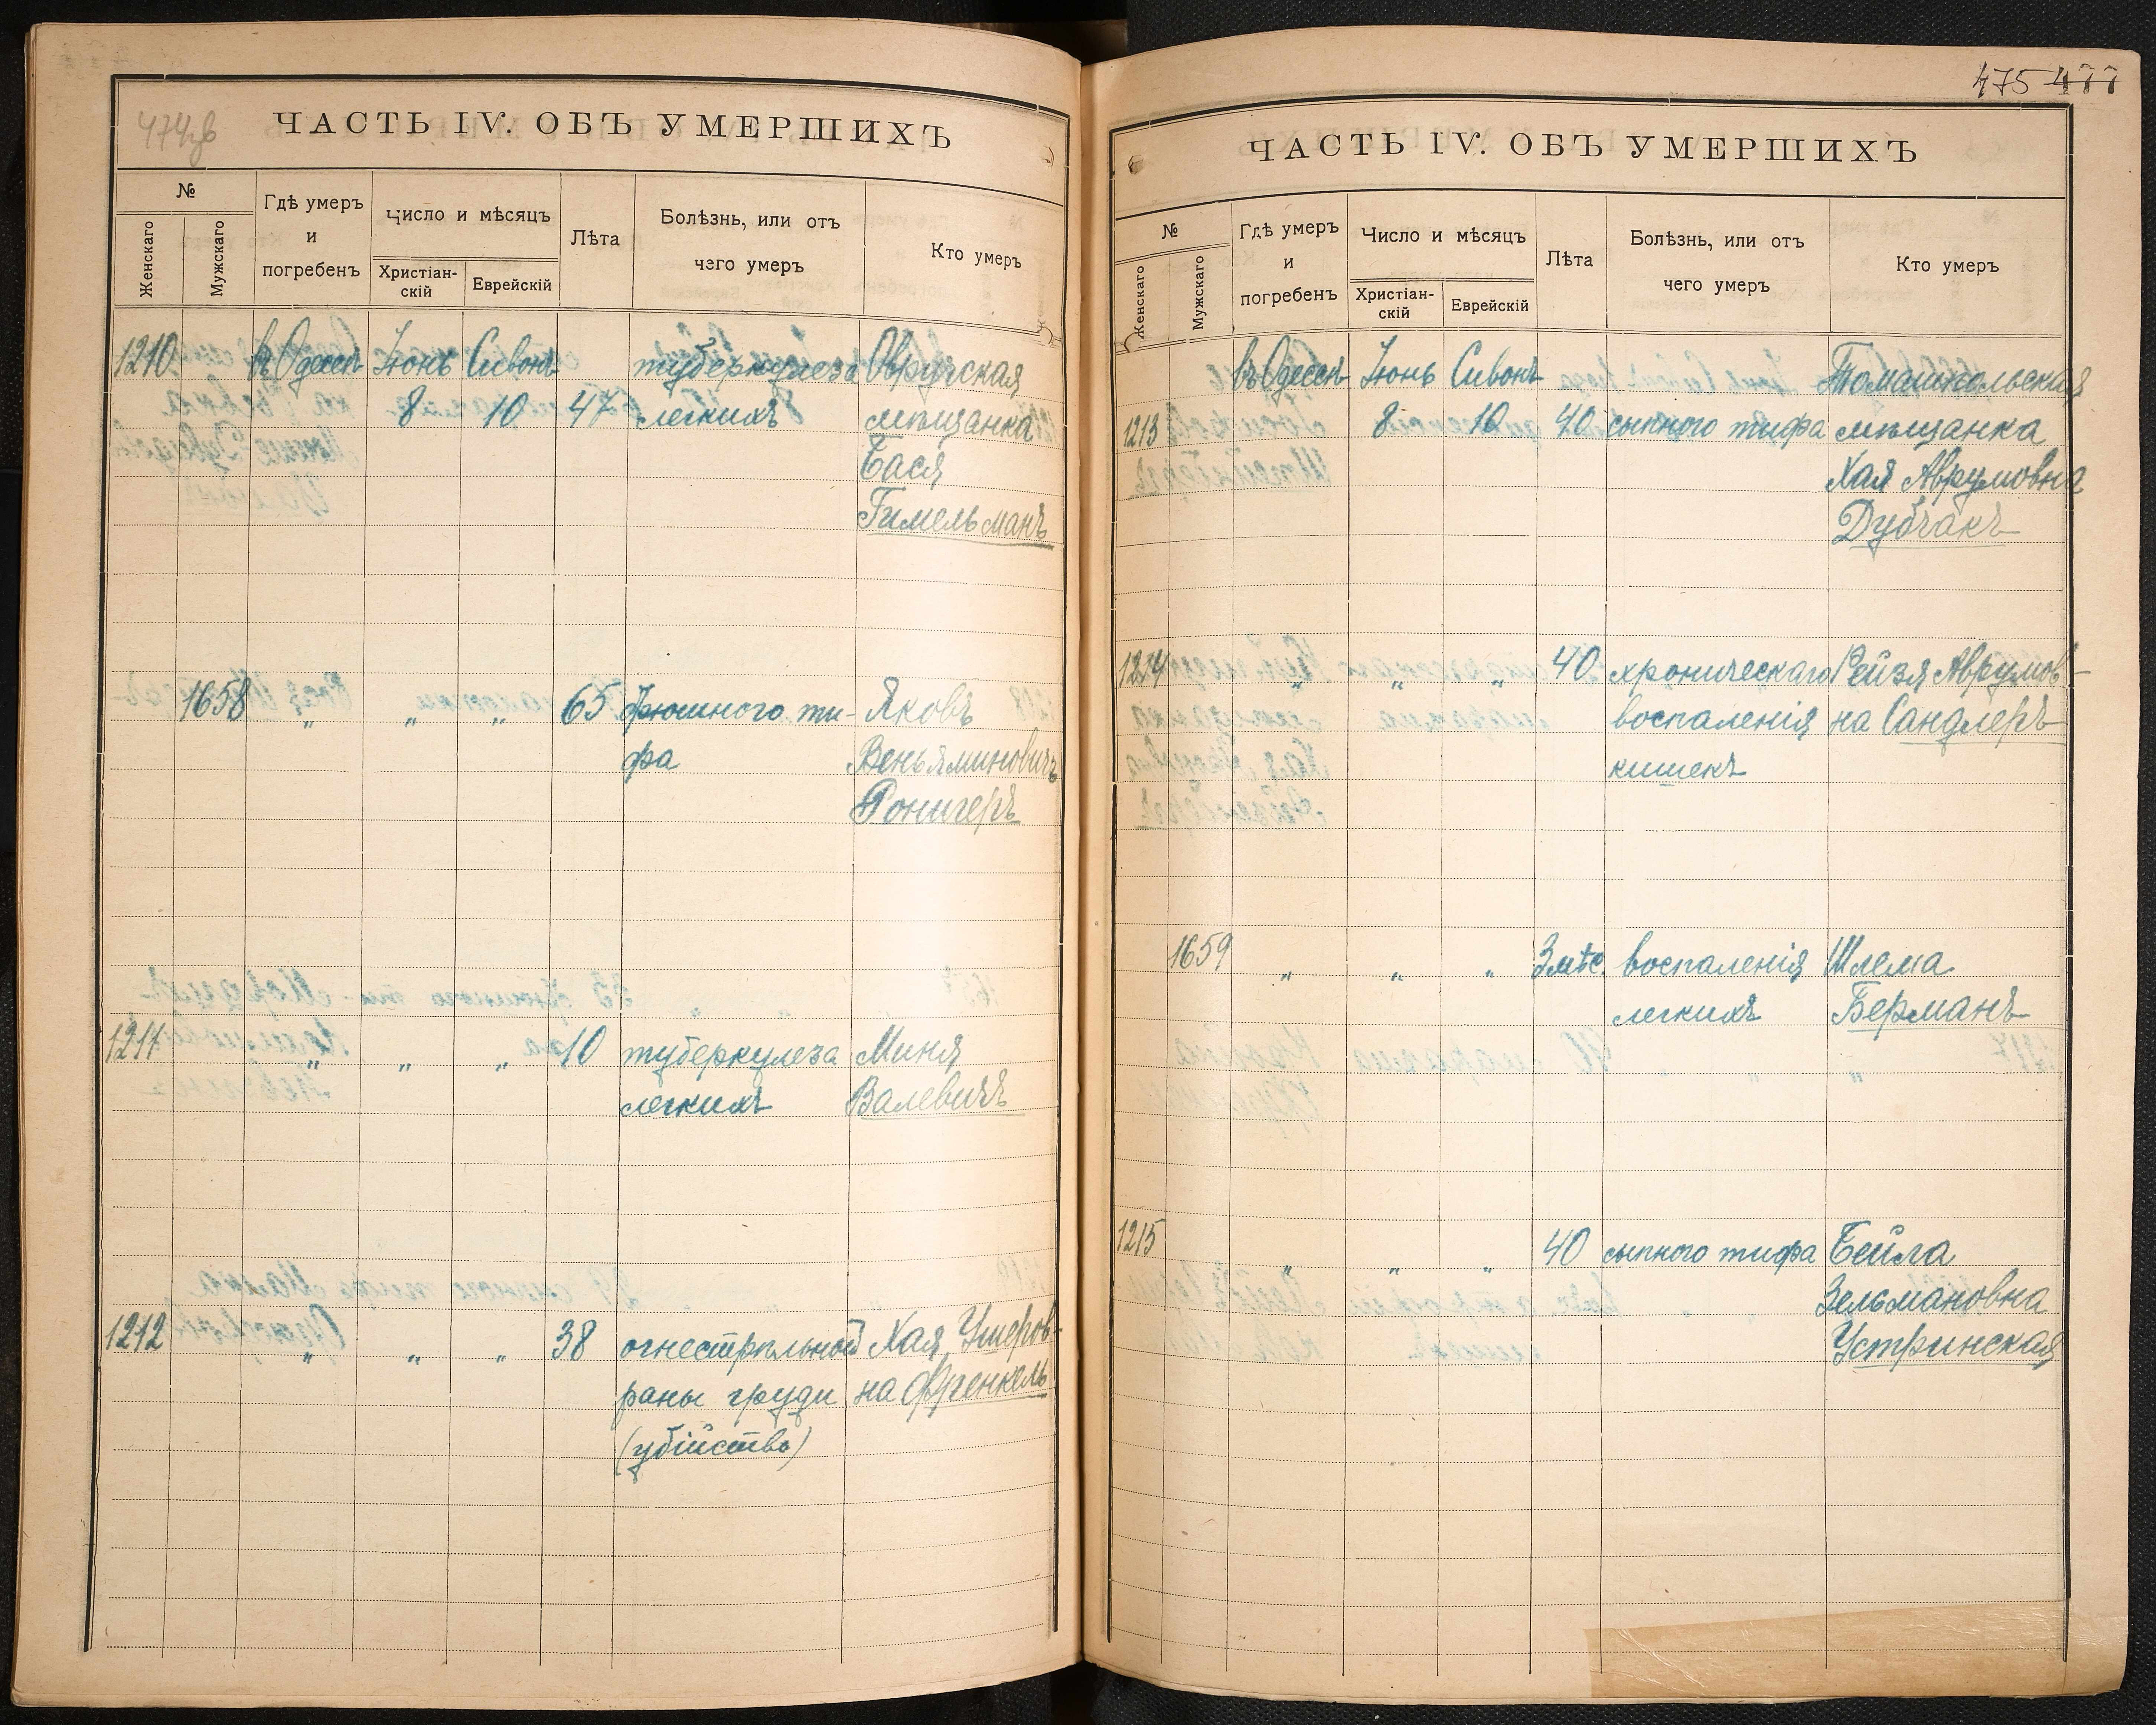 474зв
ЧАСТЬ IV. ОБЪ УМЕРШИХЪ
№
Женскаго
Мужскаго
Гдѣ умеръ
и
погребенъ
Число и мѣсяцъ
Христіан-
скій
Еврейскій
Лѣта
Болѣзнь, или отъ
чего умеръ
Кто умеръ
1210 въ Одессѣ Іюнь Сивонъ туберкулеза Овручская
8 10 47 легкихъ мѣщанка
Бася
Гимельманъ
1658 " " " 65 брюшного ти- Яковъ
фа Веньяминовичъ
Ронигеръ
1211 " " " 10 туберкулеза Миня
легкихъ Валевичъ
1212 " " " 38 огнестрѣльной Хая Умеров-
раны груди на Френкель
(убійство)
475 477
ЧАСТЬ IV. ОБЪ УМЕРШИХЪ
№
Женскаго
Мужскаго
Гдѣ умеръ
и
погребенъ
Число и мѣсяцъ
Христіан-
скій
Еврейскій
Лѣта
Болѣзнь, или отъ
чего умеръ
Кто умеръ
въ Одессѣ Іюнь Сивонъ Томашпольская
1213 8 10 40 сыпного тифа мѣщанка
Хая Аврумовна
Дубчакъ
1214 " " " 40 хроническаго Рейзя Аврумов-
воспаленія на Сандлеръ
кишекъ
1659 " " " 3 мѣс. воспаленія Шлема
легкихъ Берманъ
1215 " " " 40 сыпного тифа Бейла
Зельмановна
Устринская